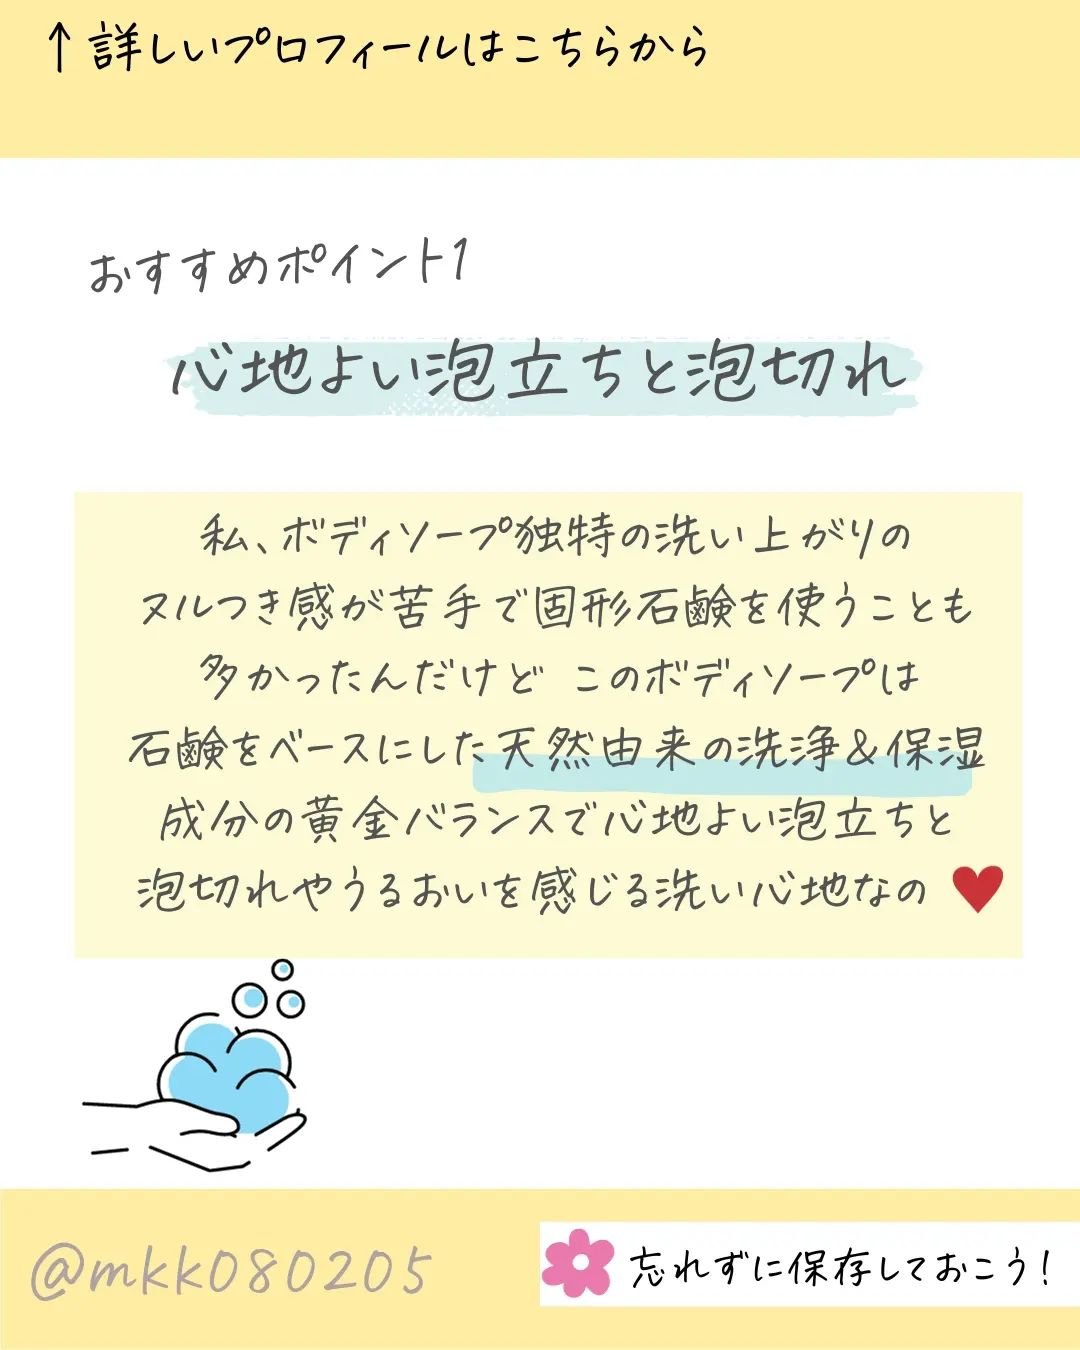 ↑詳しいプロフィールはこちらから
おすすめポイント1
心地よい泡立ちと泡切れ
私、ボディソープ独特の洗い上がりの
ヌルつき感が苦手で固形石鹸を使うことも
多かったんだけど このボディソープは
石鹸をベースにした天然由来の洗浄&保湿
成分の黄金バランスで心地よい泡立ちと
泡切れやうるおいを感じる洗い心地なの ♥
@mkk080205
忘れずに保存しておこう!